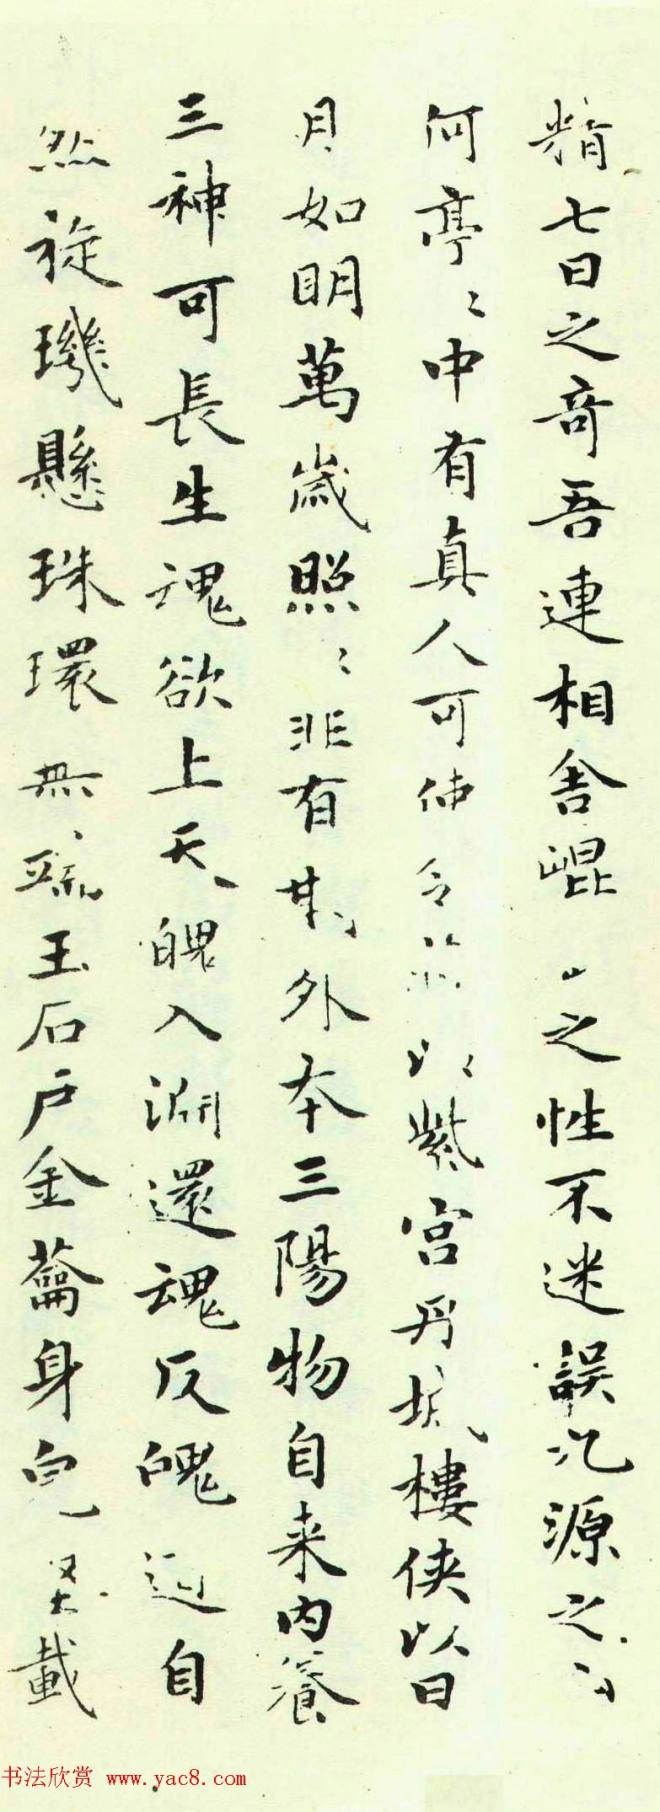 精七日之奇吾連相舍崐之性不迷誤九源之
何亭〻中有真人可使令以紫宮丹城樓俠以日
月如明萬歲照〻非有期外本三陽物自来內養
三神可長生魂欲上天魄入淵還魂反魄自
然旋璣懸珠環無端玉石戶金籥身皃堅載
书法欣赏 www.yac8.com